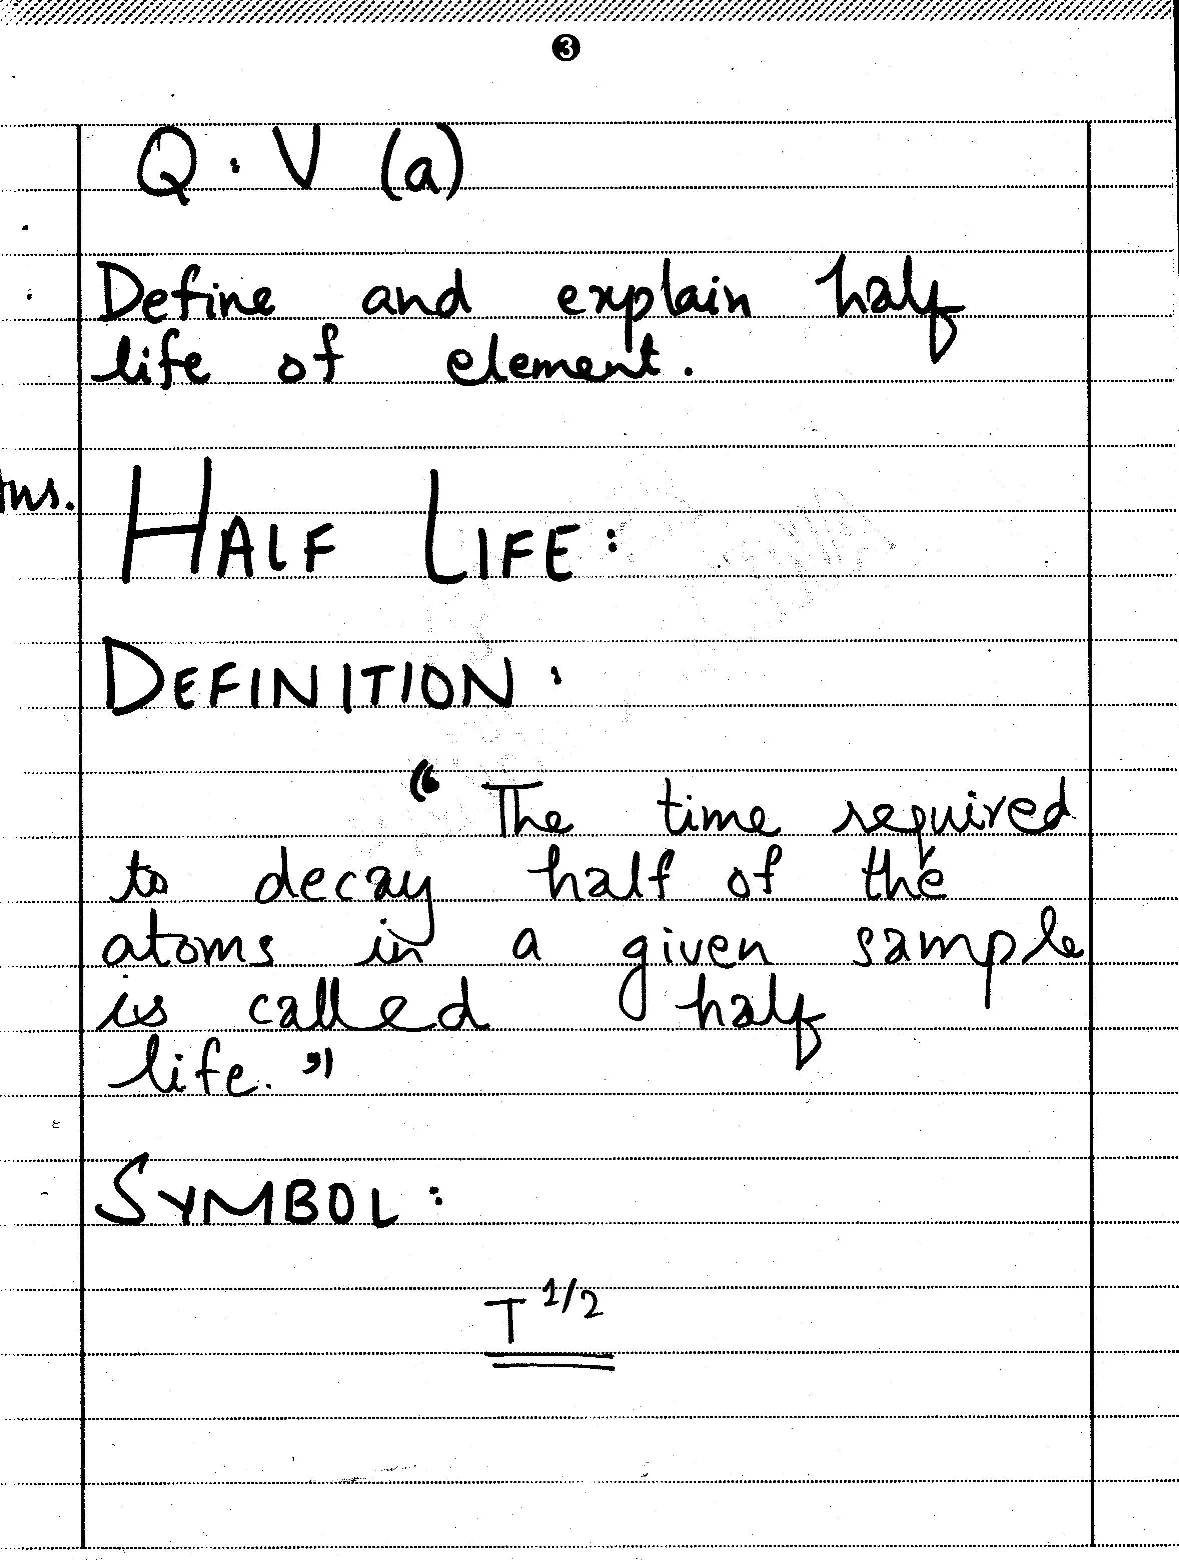 3
Q : V (a)
Define and explain half
life of element.
Ans. HALF LIFE :
DEFINITION :
“ The time required
to decay half of the
atoms in a given sample
is called half
life. ”
SYMBOL :
T 1/2